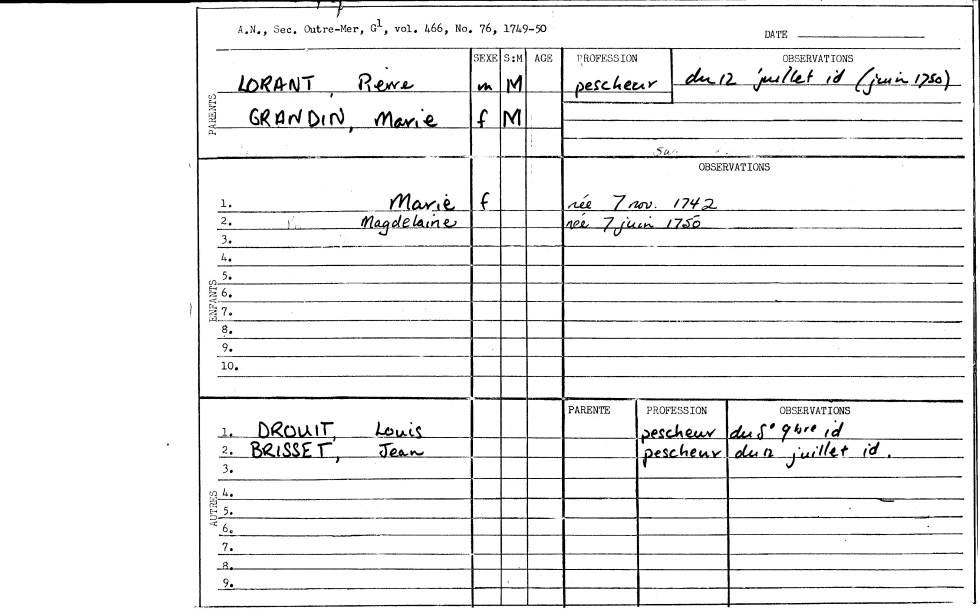 A.N., Sec. Outre-Mer, G1, vol. 466, No. 76, 1749-50
DATE
SEXE S:M AGE PROFESSION OBSERVATIONS
PARENTS
LORANT, Pierre m M pescheur du 12 juillet id (juin 1750)
GRANDIN, Marie f M
OBSERVATIONS
ENFANTS
1. Marie f née 7 nov. 1742
2. Magdelaine née 7 juin 1750
3.
4.
5.
6.
7.
8.
9.
10.
PARENTE PROFESSION OBSERVATIONS
AUTRES
1. DROUIT, Louis pescheur du 9bre id
2. BRISSET, Jean pescheur du 12 juillet id.
3.
4.
5.
6.
7.
8.
9.